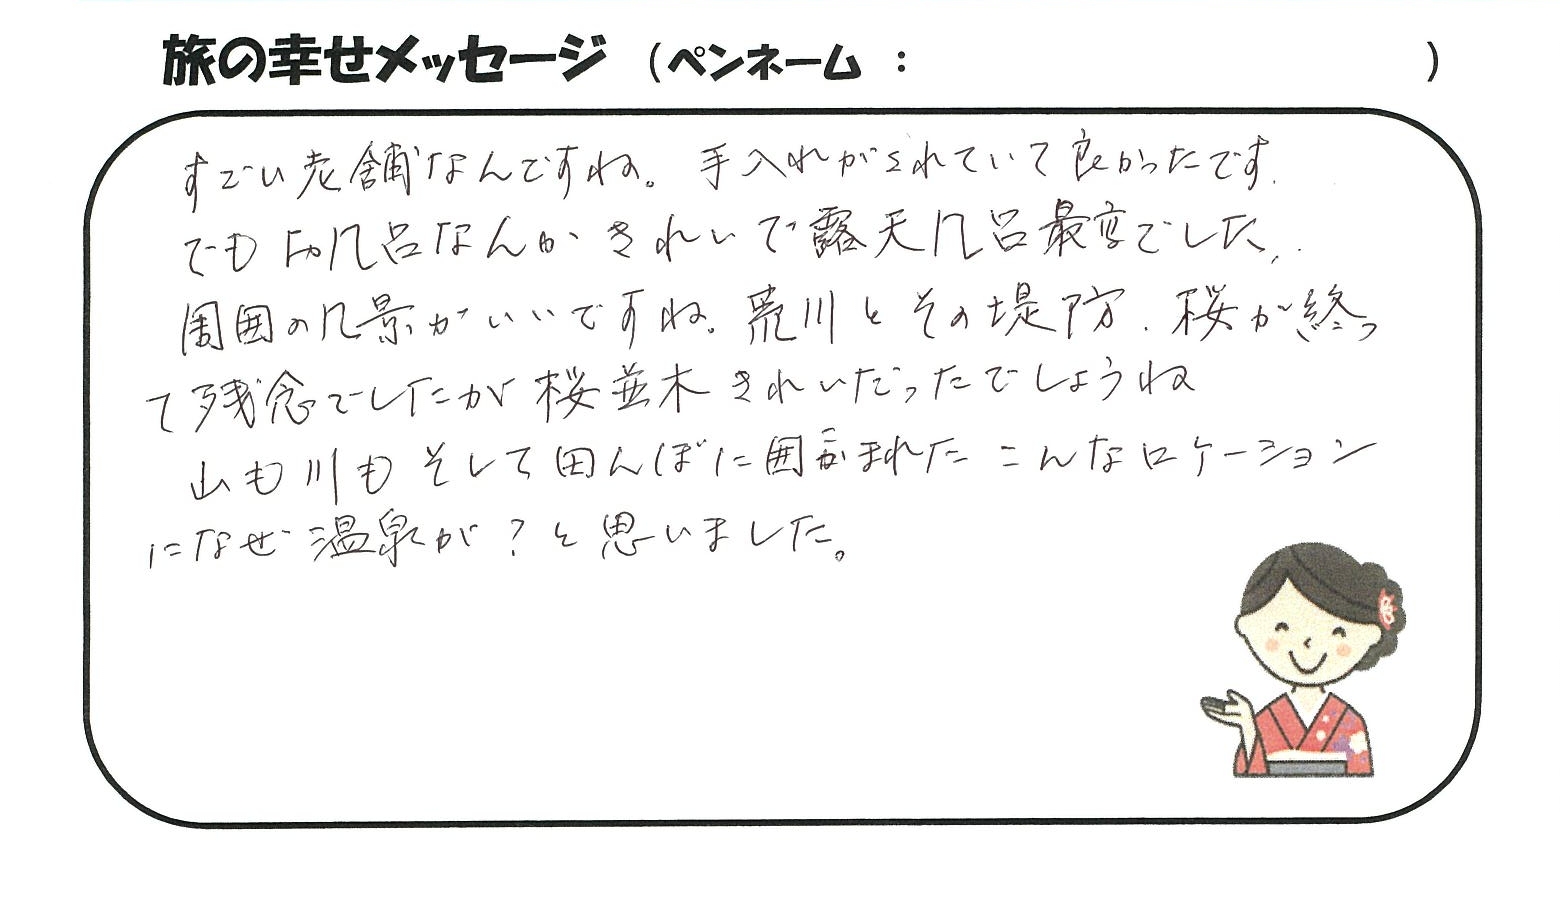 旅の幸せメッセージ (ペンネーム : )
すごい老舗なんですね。手入れがされていて良かったです.
でもお風呂なんかきれいで露天風呂最高でした.
周囲の風景がいいですね。荒川とその堤防.桜が終っ
て残念でしたが桜並木きれいだったでしょうね
山も川もそして田んぼに囲まれたこんなロケーション
になぜ温泉が?と思いました。